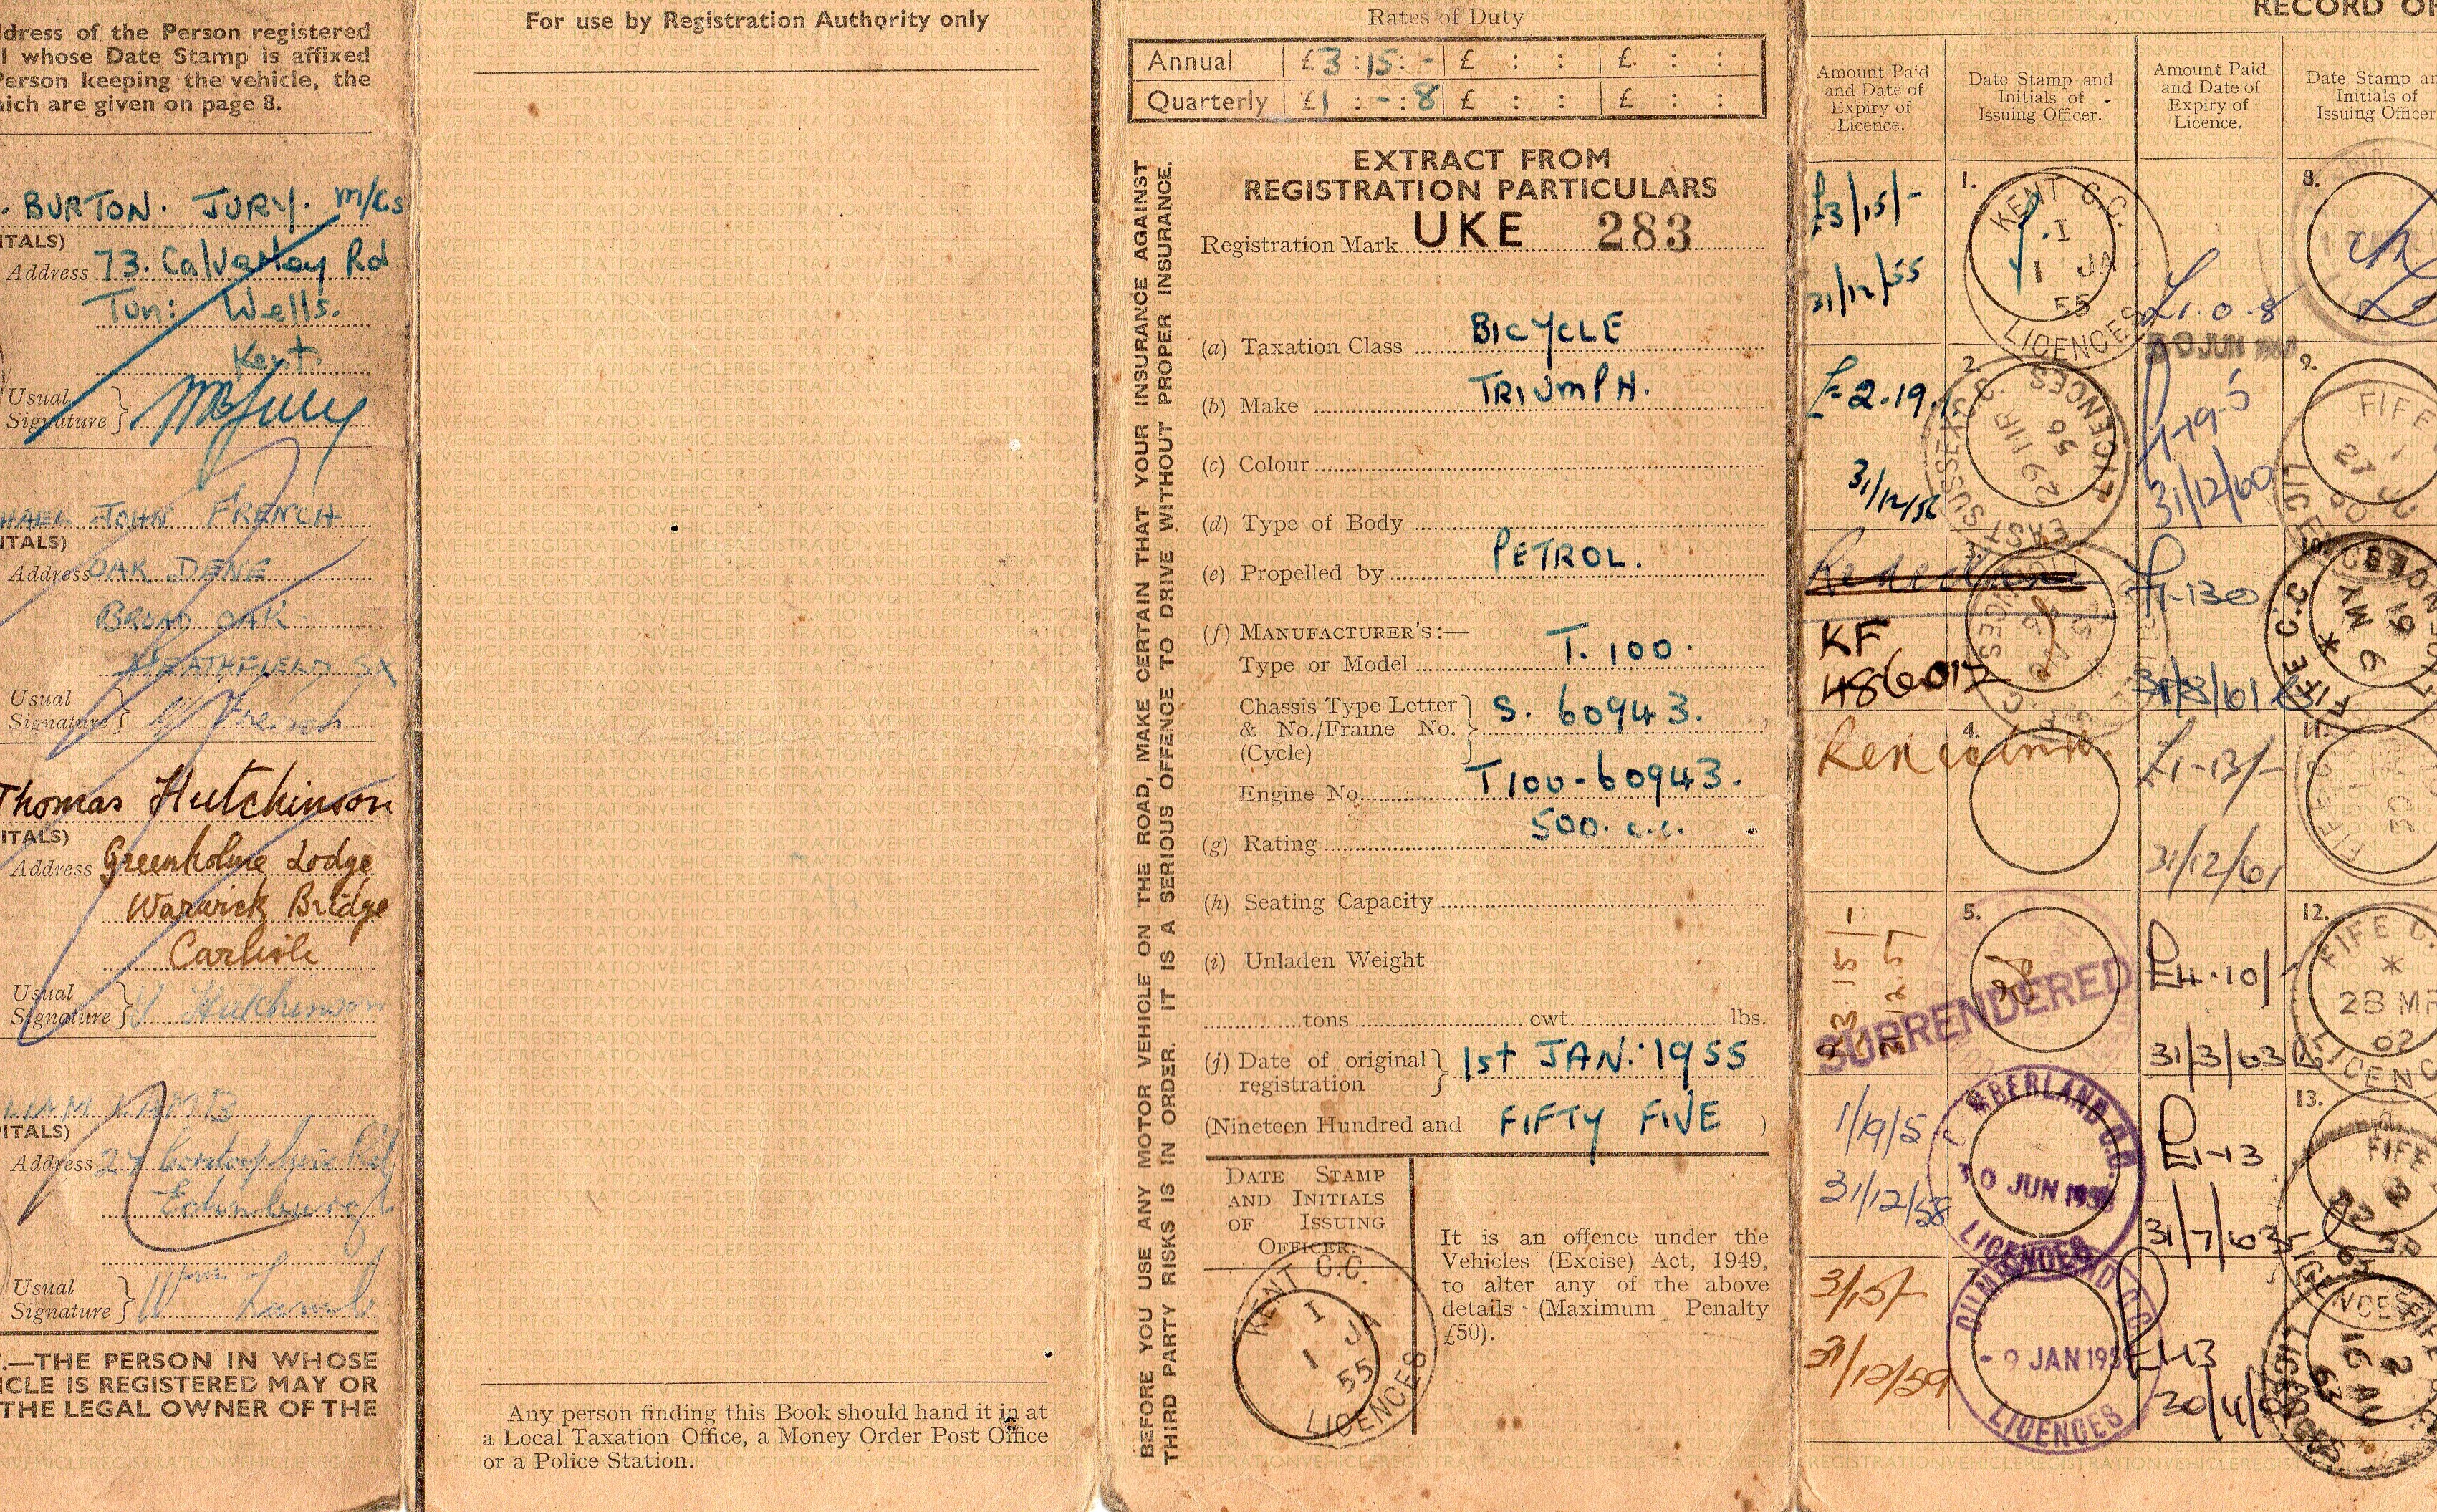 ddress of the Person registered
l whose Date Stamp is affixed
Person keeping the vehicle, the
hich are given on page 8.
. BURTON. JURY. M/Cs
ITALS)
Address 73. Calverley Rd
Tun: Wells.
Kent.
Usual
Signature } MBJury
HAEL JOHN FRENCH
ITALS)
Address OAK DENE
BROAD OAK
HEATHFIELD SX
Usual
Signature } French
Thomas Hutchinson
ITALS)
Address Greenholme Lodge
Warwick Bridge
Carlisle
Usual
Signature } Hutchinson
LIAM LAMB
ITALS)
Address 27 Rd
Edinburgh
Usual
Signature } Wm Lamb
.—THE PERSON IN WHOSE
ICLE IS REGISTERED MAY OR
THE LEGAL OWNER OF THE
For use by Registration Authority only
Any person finding this Book should hand it in at
a Local Taxation Office, a Money Order Post Office
or a Police Station.
BEFORE YOU USE ANY MOTOR VEHICLE ON THE ROAD, MAKE CERTAIN THAT YOUR INSURANCE AGAINST
THIRD PARTY RISKS IS IN ORDER. IT IS A SERIOUS OFFENCE TO DRIVE WITHOUT PROPER INSURANCE.
Rates of Duty
Annual £3:15:- £ : : £ : :
Quarterly £1:-:8 £ : : £ : :
EXTRACT FROM
REGISTRATION PARTICULARS
Registration Mark UKE 283
(a) Taxation Class BICYCLE
(b) Make TRIUMPH.
(c) Colour
(d) Type of Body
(e) Propelled by PETROL.
(f) MANUFACTURER'S:—
Type or Model T. 100.
Chassis Type Letter
& No./Frame No. } S. 60943.
(Cycle)
Engine No. T100-60943.
(g) Rating 500. c.c.
(h) Seating Capacity
(i) Unladen Weight
tons cwt. lbs.
(j) Date of original
registration } 1st JAN. 1955
(Nineteen Hundred and FIFTY FIVE )
DATE STAMP
AND INITIALS
OF ISSUING
OFFICER.
KENT C.C.
1
1 JA
55
LICENCES
It is an offence under the
Vehicles (Excise) Act, 1949,
to alter any of the above
details (Maximum Penalty
£50).
RECORD O
Amount Paid
and Date of
Expiry of
Licence.
Date Stamp and
Initials of
Issuing Officer.
Amount Paid
and Date of
Expiry of
Licence.
Date Stamp an
Initials of
Issuing Officer
£3/15/-
31/12/55
1.
KENT C.C.
1
1 JA
55
LICENCES
£2.19
31/12/56
2.
EAST SUSSEX C.C.
29 MR
56
LICENCES
3.
KF
486017
4.
5.
£3 15/-
31.12.57
SURRENDERED
1/19/5
31/12/58
CUMBERLAND C.C.
30 JUN 1958
LICENCES
3/15/-
31/12/59
7.
CUMBERLAND C.C.
- 9 JAN 1959
LICENCES
£1.0.8
30 JUN 1960
8.
£1-19-5
31/12/60
9.
FIFE
£1-130
31/8/61
10.
FIFE C.C.
6 MY
61
£1-13/-
31/12/61
11.
FIFE C.C.
£4.10/-
31/3/63
12.
FIFE C.
28 MR
62
LICENC
£1-13
31/7/63
13.
FIFE
£1-13
30/4/6
16 AU
63
LICENCES